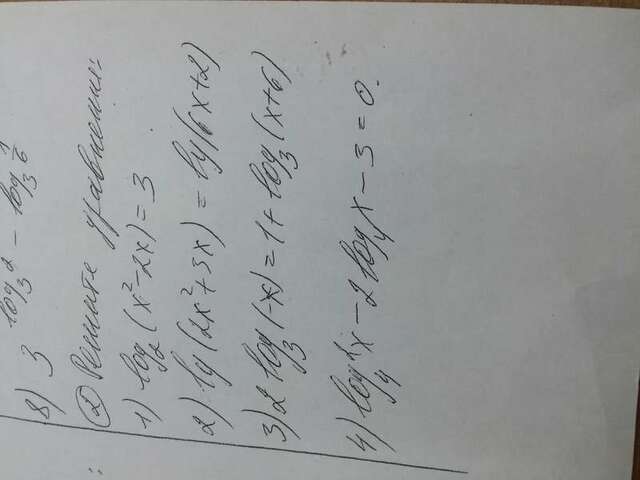 8) 3^(log₃2 − log₃ 1/6)
② Решите уравнения:
1) log₂(x²−2x)=3
2) lg(2x²+3x)=lg(6x+2)
3) 2log₃(−x)=1+log₃(x+6)
4) log₄²x−2log₄x−3=0.